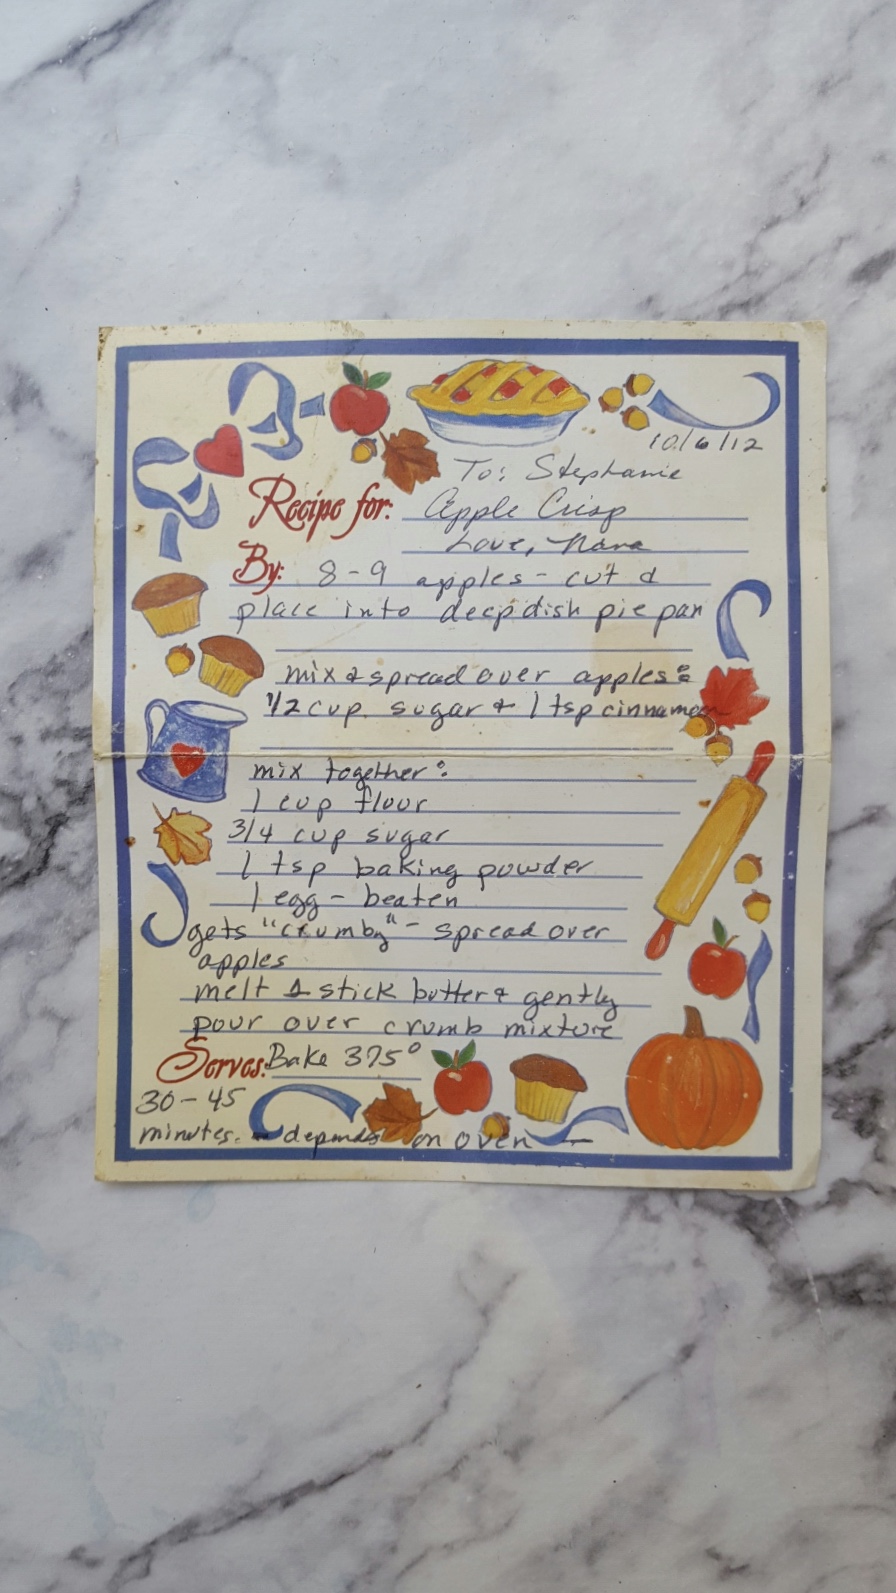 10/6/12
To: Stephanie
Recipe for: Apple Crisp
Love, Nana
By: 8-9 apples - cut &
place into deepdish pie pan
mix & spread over apples:
1/2 cup sugar & 1 tsp cinnamon
mix together:
1 cup flour
3/4 cup sugar
1 tsp baking powder
1 egg - beaten
gets "crumby" - spread over
apples
melt 1 stick butter & gently
pour over crumb mixture
Serves: Bake 375°
30-45
minutes. - depends on oven -